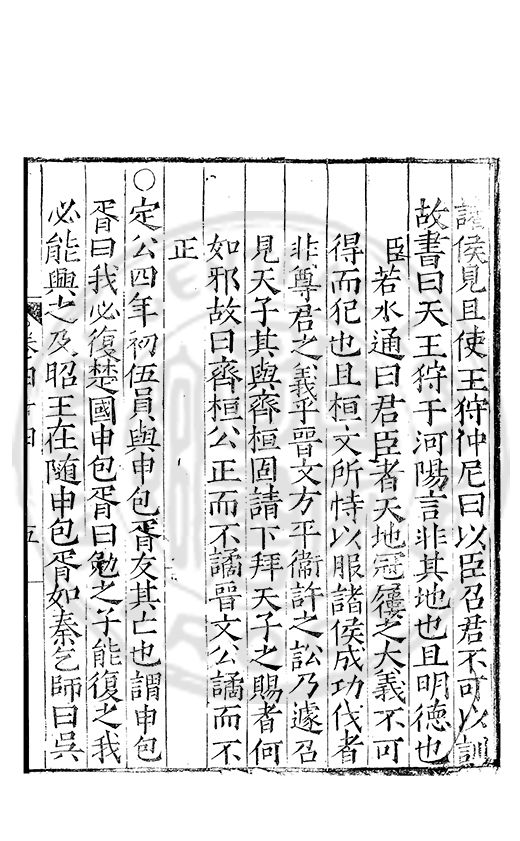 諸侯見且使王狩仲尼曰以臣召君不可以訓
故書曰天王狩于河陽言非其地也且明德也
臣若水通曰君臣者天地冠履之大義不可
得而犯也且桓文所恃以服諸侯成功伐者
非尊君之義乎晉文方平衞許之訟乃遽召
見天子其與齊桓固請下拜天子之賜者何
如邪故曰齊桓公正而不譎晉文公譎而不
正
○定公四年初伍員與申包胥友其亡也謂申包
胥曰我必復楚國申包胥曰勉之子能復之我
必能興之及昭王在隨申包胥如秦乞師曰吳
卷四十四
五